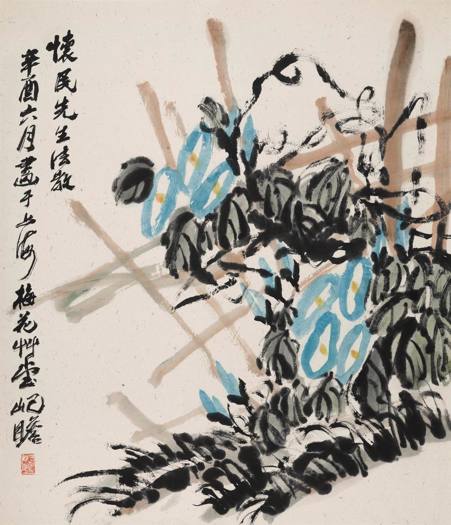 懷民先生法教
辛酉六月畫于上海梅花草堂屺瞻